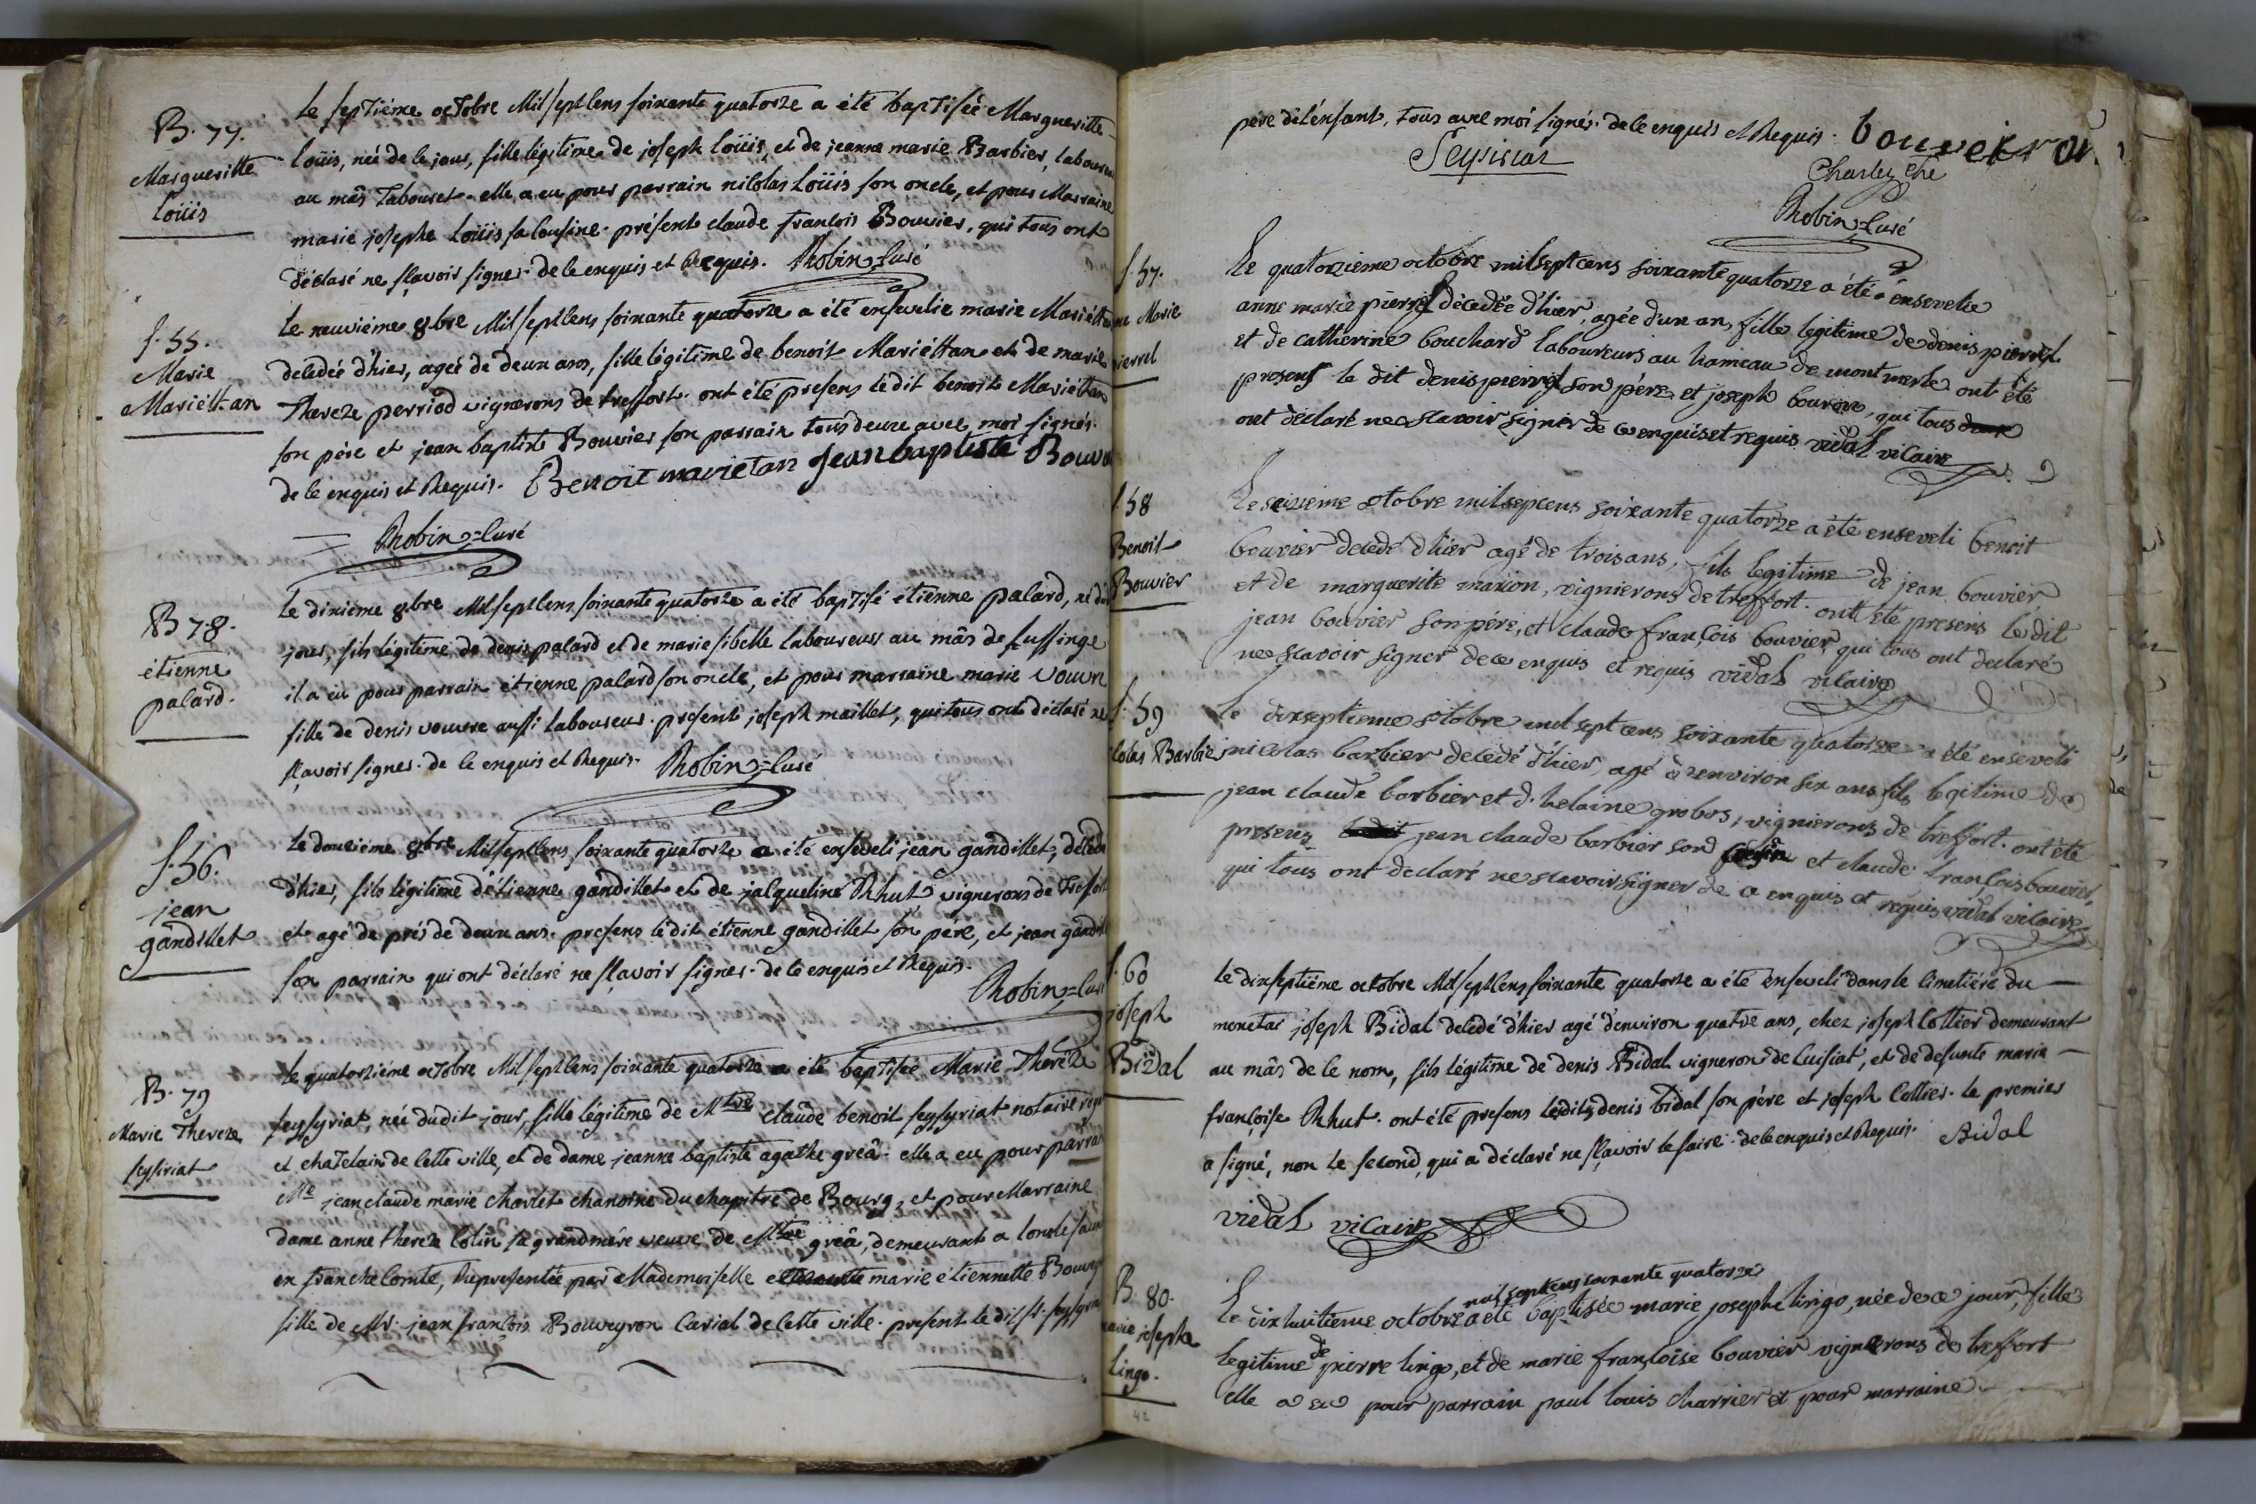 B. 77.
Margueritte
Loüis
Le septiéme octobre Mil sept Cens soixante quatorze a été baptisée Margueritte
Loüis, née de ce jour, fille légitime de joseph Loüis, et de jeanne marie Barbier, laboureu
au mâs Tabouret. elle a eu pour parrain nicolas Loüis son oncle, et pour Marraine
marie josephe Loüis sa Cousine. présent claude francois Bouvier, qui tous ont
déclaré ne sçavoir signer. de ce enquis et Requis. Robin=Curé
f. 55.
Marie
Mariéttan
Le neuviéme 8bre Mil sept Cens soixante quatorze a été ensevelie marie Mariéttan
decedée d'hier, agée de deux ans, fille légitime de benoit Mariéttan et de marie
Thereze perriod vignerons de treffort. ont été presens ledit benoit Mariéttan
son père et jean baptiste Bouvier son parrain tous deux avec moi signés.
de ce enquis et Requis. Benoit marietan Jean baptiste Bouvi
Robin=Curé
B 78.
étienne
palard.
Le dixiéme 8bre Mil sept Cens soixante quatorze a été baptisé étienne palard, né du
jour, fils légitime de denis palard et de marie sibelle laboureurs au mâs de Cussinge
il a eu pour parrain étienne palard son oncle, et pour marraine marie vouvre
fille de denis vouvre aussi laboureur. present joseph maillet, qui tous ont déclaré ne
sçavoir signer. de ce enquis et Requis. Robin=Curé
f. 56.
jean
gandillet
Le douziéme 8bre Mil sept Cens soixante quatorze a été enseveli jean gandillet, décedé
d'hier, fils légitime d'étienne gandillet et de jacqueline Rhut vignerons de Trefort
et agé de près de deux ans. presens ledit étienne gandillet son père, et jean gandill
son parrain qui ont déclaré ne sçavoir signer. de ce enquis et Requis.
Robin=Curé
B. 79
Marie Thereze
seysiriat
Le quatorziéme octobre Mil sept Cens soixante quatorze a été baptisée Marie Thereze
seyssyriat, née dudit jour, fille légitime de Mtre claude benoit seyssyriat notaire royal
et chatelain de cette ville, et de dame jeanne baptiste agathe greâ. elle a eu pour parrai
Mre jean claude marie charlet chanoine du chapitre de Bourg, et pour Marraine
dame anne thereze Colin sa grandmére veuve de Mtre greâ, demeurant a lons le saun
en franche Comté, Representée par Mademoiselle marie étiennette Bouvey
fille de Mr. jean francois Bouveyron avocat de cette ville. present le dit sr. seyssyria
père de l'énfant, tous avec moi signés. de ce enquis et Requis. bouveiron
Seysiriat
Charlez che
Robin=Curé
f. 57.
ne Marie
ierrel
Le quatorzieme octobre mil sept cens soixante quatorze a été ensevelie
anne marie pierrel décedée d'hier, agée d'un an, fille legitime de denis pierrel
et de catherine bouchard laboureurs au hameau de montmerle ont été
presens le dit denis pierrel son père et joseph bouron, qui tous
ont déclaré ne sçavoir signer de ce enquis et requis vidal vicaire
f. 58
Benoit
Bouvier
Le seizieme octobre mil sept cens soixante quatorze a été enseveli benoit
bouvier decedé d'hier agé de trois ans, fils legitime de jean bouvier
et de marguerite marion, vignierons de treffort. ont été presens le dit
jean bouvier son père, et claude françois bouvier qui tous ont declaré
ne scavoir signer de ce enquis et requis vidal vicaire
f. 59
colas Barbier
Le dixseptieme octobre mil sept cens soixante quatorze a été enseveli
nicolas barbier decedé d'hier, agé d'environ six ans fils legitime de
jean claude barbier et d'helaine grobos, vignierons de treffort. ont été
presens jean claude barbier son cousin et claude françois bouvier,
qui tous ont declaré ne scavoir signer de ce enquis et requis vidal vicaire
f. 60
joseph
Bidal
Le dixseptiéme octobre Mil sept Cens soixante quatorze a été enseveli dans le Cimetiére du
monetai joseph Bidal decedé d'hier agé d'environ quatre ans, chez joseph Collier demeurant
au mâs de ce nom, fils légitime de denis Bidal vigneron de Cuisiat, et de defunte marie
françoise Rhut. ont été presens lesdits denis bidal son père et joseph Collier. le premier
a signé, non le second, qui a déclaré ne sçavoir le faire. de ce enquis et Requis. Bidal
vidal vicaire
B. 80.
marie josephe
Lingo.
mil sept cens soixante quatorze
Le dix huitieme octobre a été baptisée marie josephe lingo, née de ce jour, fille
legitime de pierre lingo, et de marie françoise bouvier vignerons de treffort
elle a eu pour parrain paul louis charrier et pour marraine
42